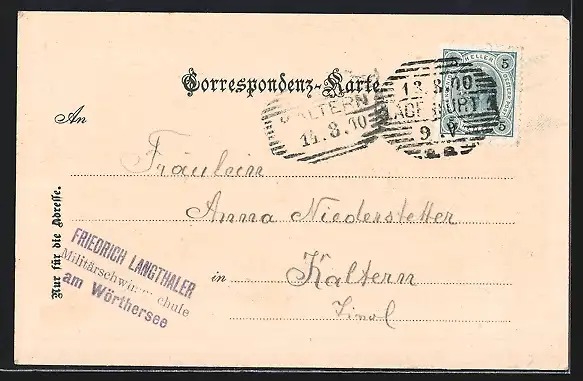 Correspondenz-Karte
HELLER
5
5 5
13.8.00
KLAGENFURT
9 V
KALTERN
14.8.00
An
Fräulein
Anna Niederstetter
in Kaltern
Tirol
Nur für die Adresse.
FRIEDRICH LANGTHALER
Militärschwimmschule
am Wörthersee